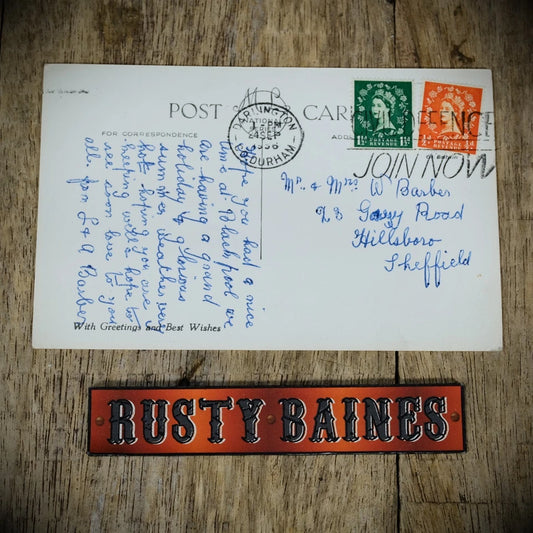 POST CARD
FOR CORRESPONDENCE
DARLINGTON
CO. DURHAM
SEP
1956
NATIONAL
DEFENCE
JOIN NOW
POSTAGE
REVENUE
1½d
POSTAGE
REVENUE
½d
Hope you had a nice
time at Blackpool we
are having a grand
holiday & glorious
summer weather very
hot hoping you are
keeping well & hope to
see soon love to you
all from L & A Barber
Mr. & Mrs. W Barber
Road
Hillsboro
Sheffield
With Greetings and Best Wishes
RUSTY BAINES